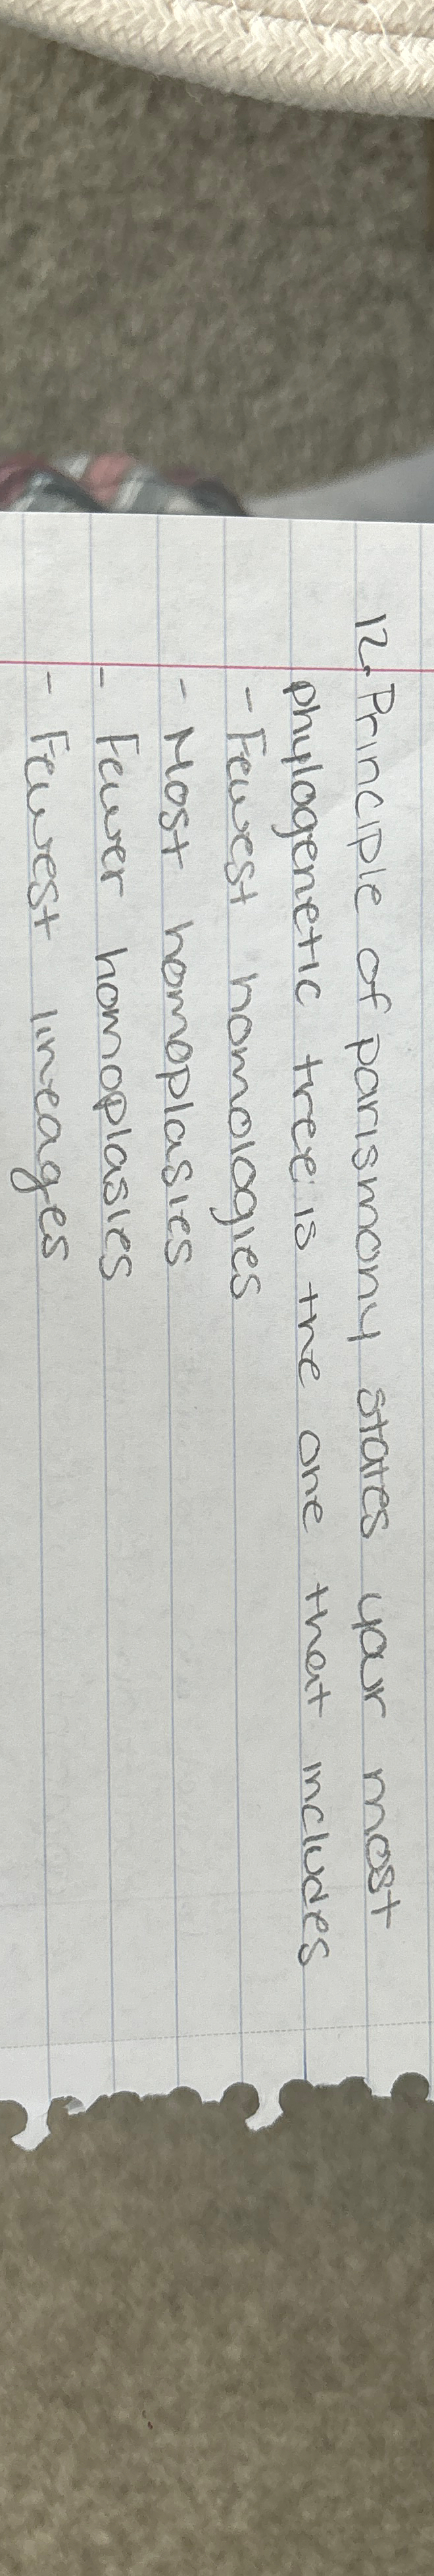 12. Principle of parismony states your most
phylogenetic tree is the one that includes
- Fewest homologies
- Most homoplasies
- Fewer homoplasies
- Fewest lineages